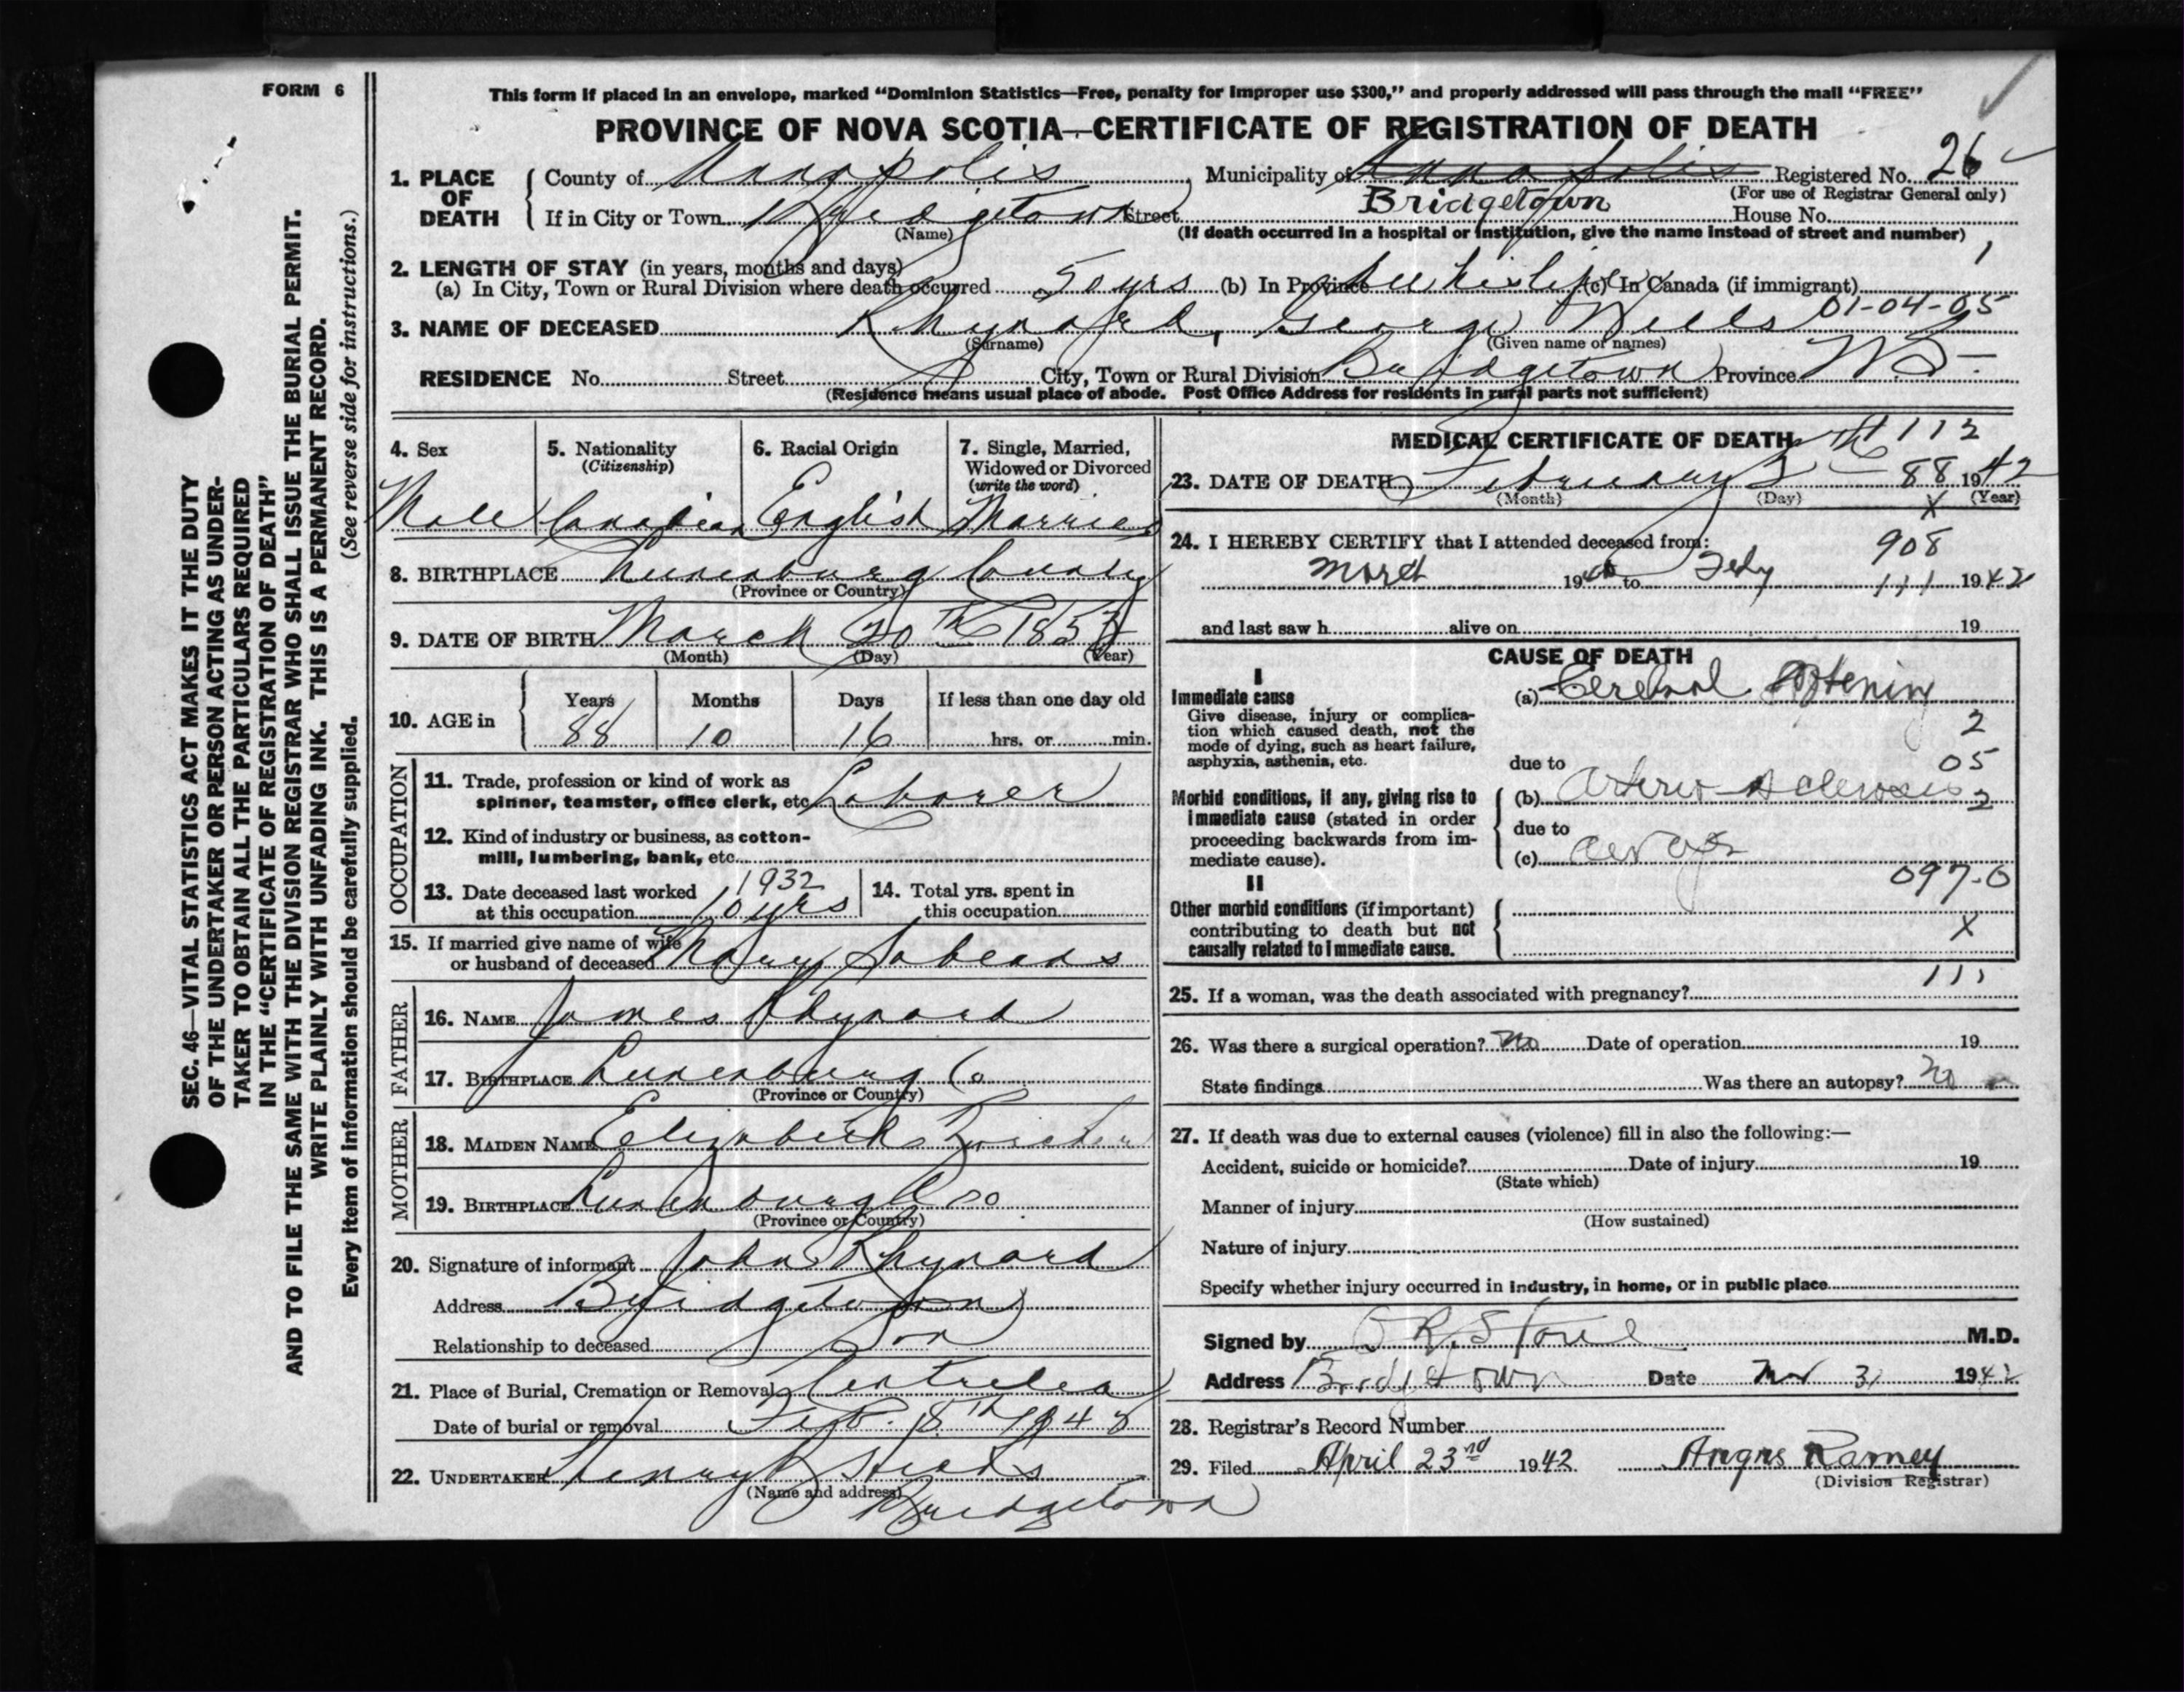 FORM 6
This form if placed in an envelope, marked “Dominion Statistics—Free, penalty for improper use $300,” and properly addressed will pass through the mail “FREE”
PROVINCE OF NOVA SCOTIA—CERTIFICATE OF REGISTRATION OF DEATH
1. PLACE OF DEATH County of Annapolis Municipality of Annapolis Bridgetown Registered No. 26
(For use of Registrar General only)
If in City or Town Bridgetown Street House No.
(Name) (If death occurred in a hospital or institution, give the name instead of street and number)
1
2. LENGTH OF STAY (in years, months and days)
(a) In City, Town or Rural Division where death occurred 50 yrs (b) In Province All his life (c) In Canada (if immigrant)
3. NAME OF DECEASED Rhynard, George Wells 01-04-05
(Surname) (Given name or names)
RESIDENCE No. Street City, Town or Rural Division Bridgetown Province N.S.
(Residence means usual place of abode. Post Office Address for residents in rural parts not sufficient)
4. Sex 5. Nationality (Citizenship) 6. Racial Origin 7. Single, Married, Widowed or Divorced (write the word)
Male Canadian English Married
8. BIRTHPLACE Lunenburg County
(Province or Country)
9. DATE OF BIRTH March 20th
(Month) (Day) (Year)
10. AGE in Years Months Days If less than one day old
88 10 16 hrs. or min.
OCCUPATION
11. Trade, profession or kind of work as spinner, teamster, office clerk, etc. Laborer
12. Kind of industry or business, as cotton-mill, lumbering, bank, etc.
13. Date deceased last worked at this occupation 1932 10 yrs
14. Total yrs. spent in this occupation
15. If married give name of wife or husband of deceased Mary Sabeans
FATHER
16. NAME James Rhynard
17. BIRTHPLACE Lunenburg Co
(Province or Country)
MOTHER
18. MAIDEN NAME Elizabeth
19. BIRTHPLACE Lunenburg Co
(Province or Country)
20. Signature of informant John Rhynard
Address Bridgetown
Relationship to deceased Son
21. Place of Burial, Cremation or Removal Centrelea
Date of burial or removal Feb. 8th 1942
22. UNDERTAKER Henry B Hicks
(Name and address) Bridgetown
MEDICAL CERTIFICATE OF DEATH 112
23. DATE OF DEATH February 88 1942
(Month) (Day) (Year)
X
24. I HEREBY CERTIFY that I attended deceased from: 908
March 19 to Feby 111 1942
and last saw h alive on 19
CAUSE OF DEATH
I
Immediate cause (a) Cerebral softening
Give disease, injury or complication which caused death, not the mode of dying, such as heart failure, asphyxia, asthenia, etc.
2
05
due to
Morbid conditions, if any, giving rise to immediate cause (stated in order proceeding backwards from immediate cause).
(b) Arterio sclerosis 2
due to
(c)
II 097-0
Other morbid conditions (if important) contributing to death but not causally related to immediate cause.
X
111
25. If a woman, was the death associated with pregnancy?
26. Was there a surgical operation? no Date of operation 19
State findings Was there an autopsy? no
27. If death was due to external causes (violence) fill in also the following:—
Accident, suicide or homicide? Date of injury 19
(State which)
Manner of injury
(How sustained)
Nature of injury
Specify whether injury occurred in industry, in home, or in public place
Signed by M.D.
Address Bridgetown Date Mar 31 1942
28. Registrar's Record Number
29. Filed April 23rd 1942 Angus Ramey
(Division Registrar)
SEC. 46—VITAL STATISTICS ACT MAKES IT THE DUTY
OF THE UNDERTAKER OR PERSON ACTING AS UNDER-
TAKER TO OBTAIN ALL THE PARTICULARS REQUIRED
IN THE “CERTIFICATE OF REGISTRATION OF DEATH”
AND TO FILE THE SAME WITH THE DIVISION REGISTRAR WHO SHALL ISSUE THE BURIAL PERMIT.
WRITE PLAINLY WITH UNFADING INK. THIS IS A PERMANENT RECORD.
Every item of information should be carefully supplied. (See reverse side for instructions.)